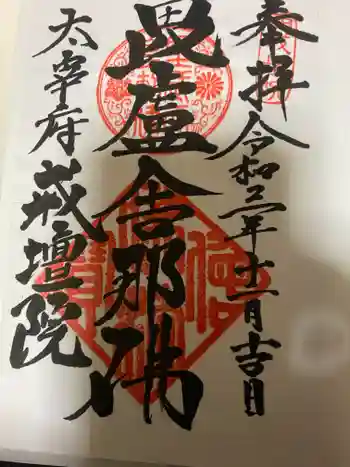 奉拝
令和三年十一月吉日
毘盧舎那佛
太宰府
戒壇院